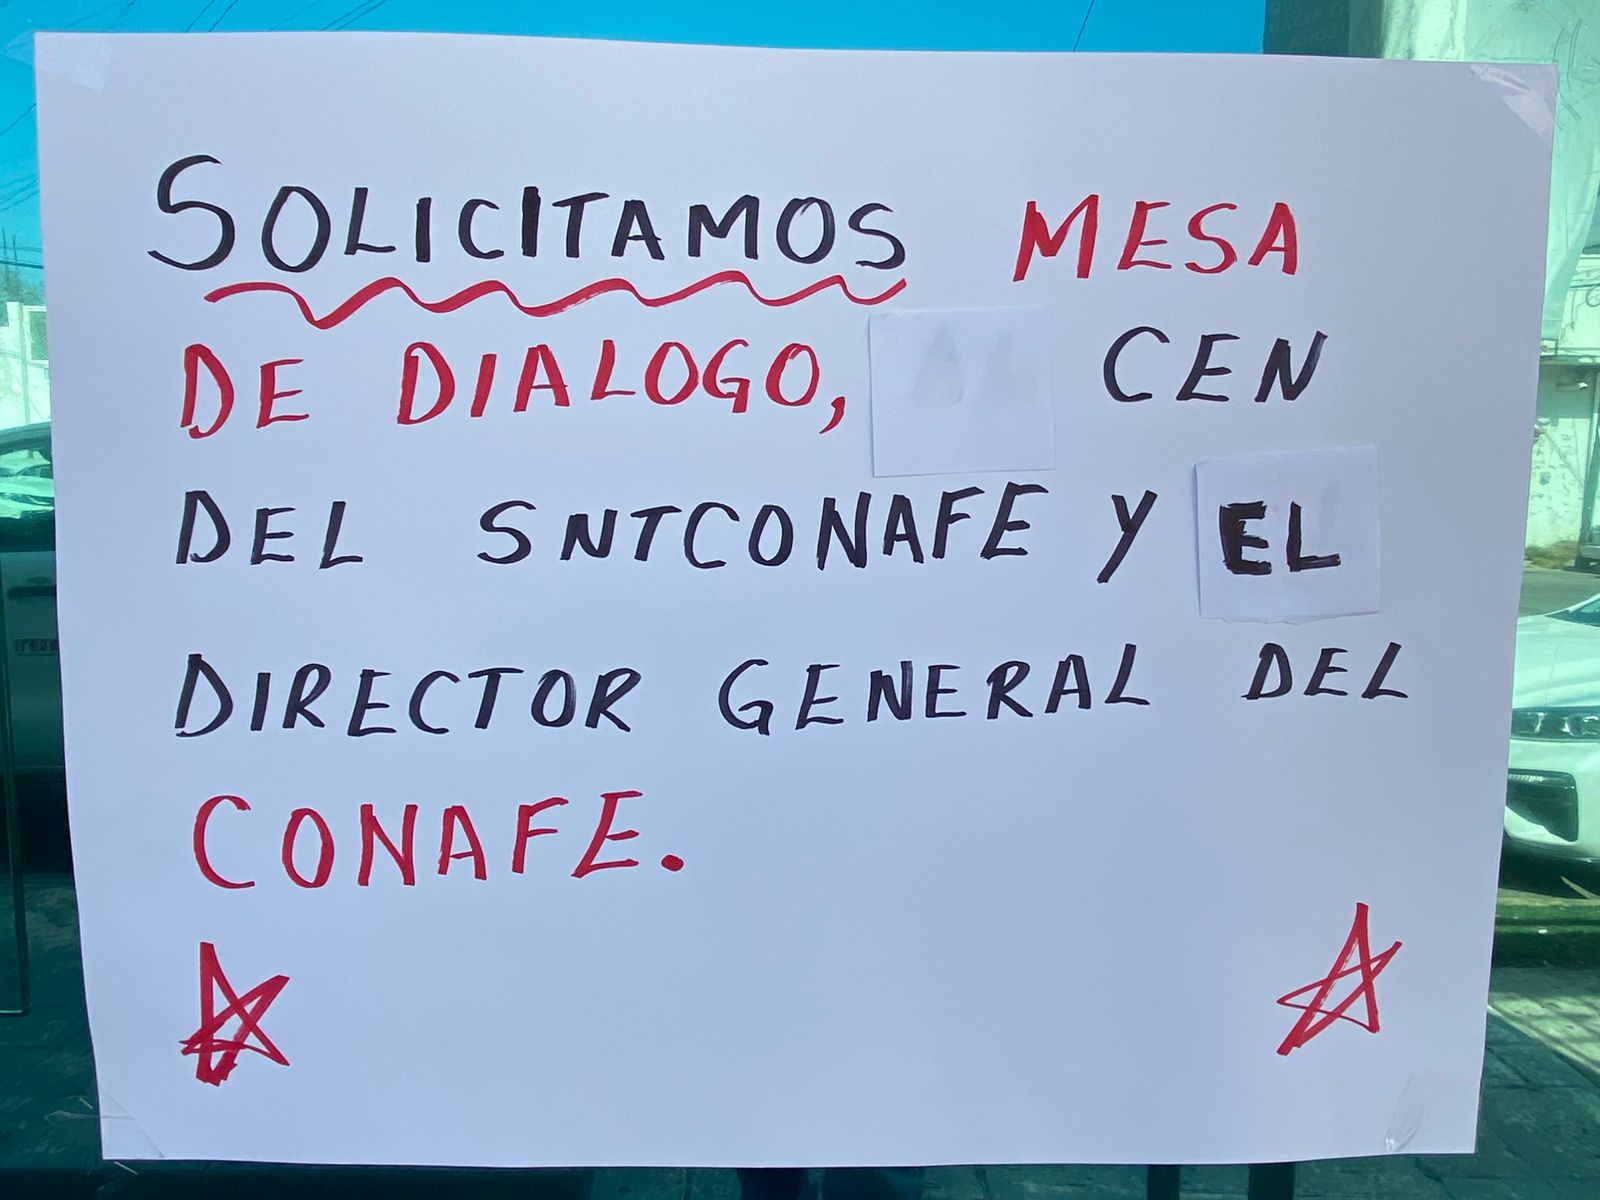 SOLICITAMOS MESA
DE DIALOGO, CEN
DEL SNTCONAFE Y EL
DIRECTOR GENERAL DEL
CONAFE.